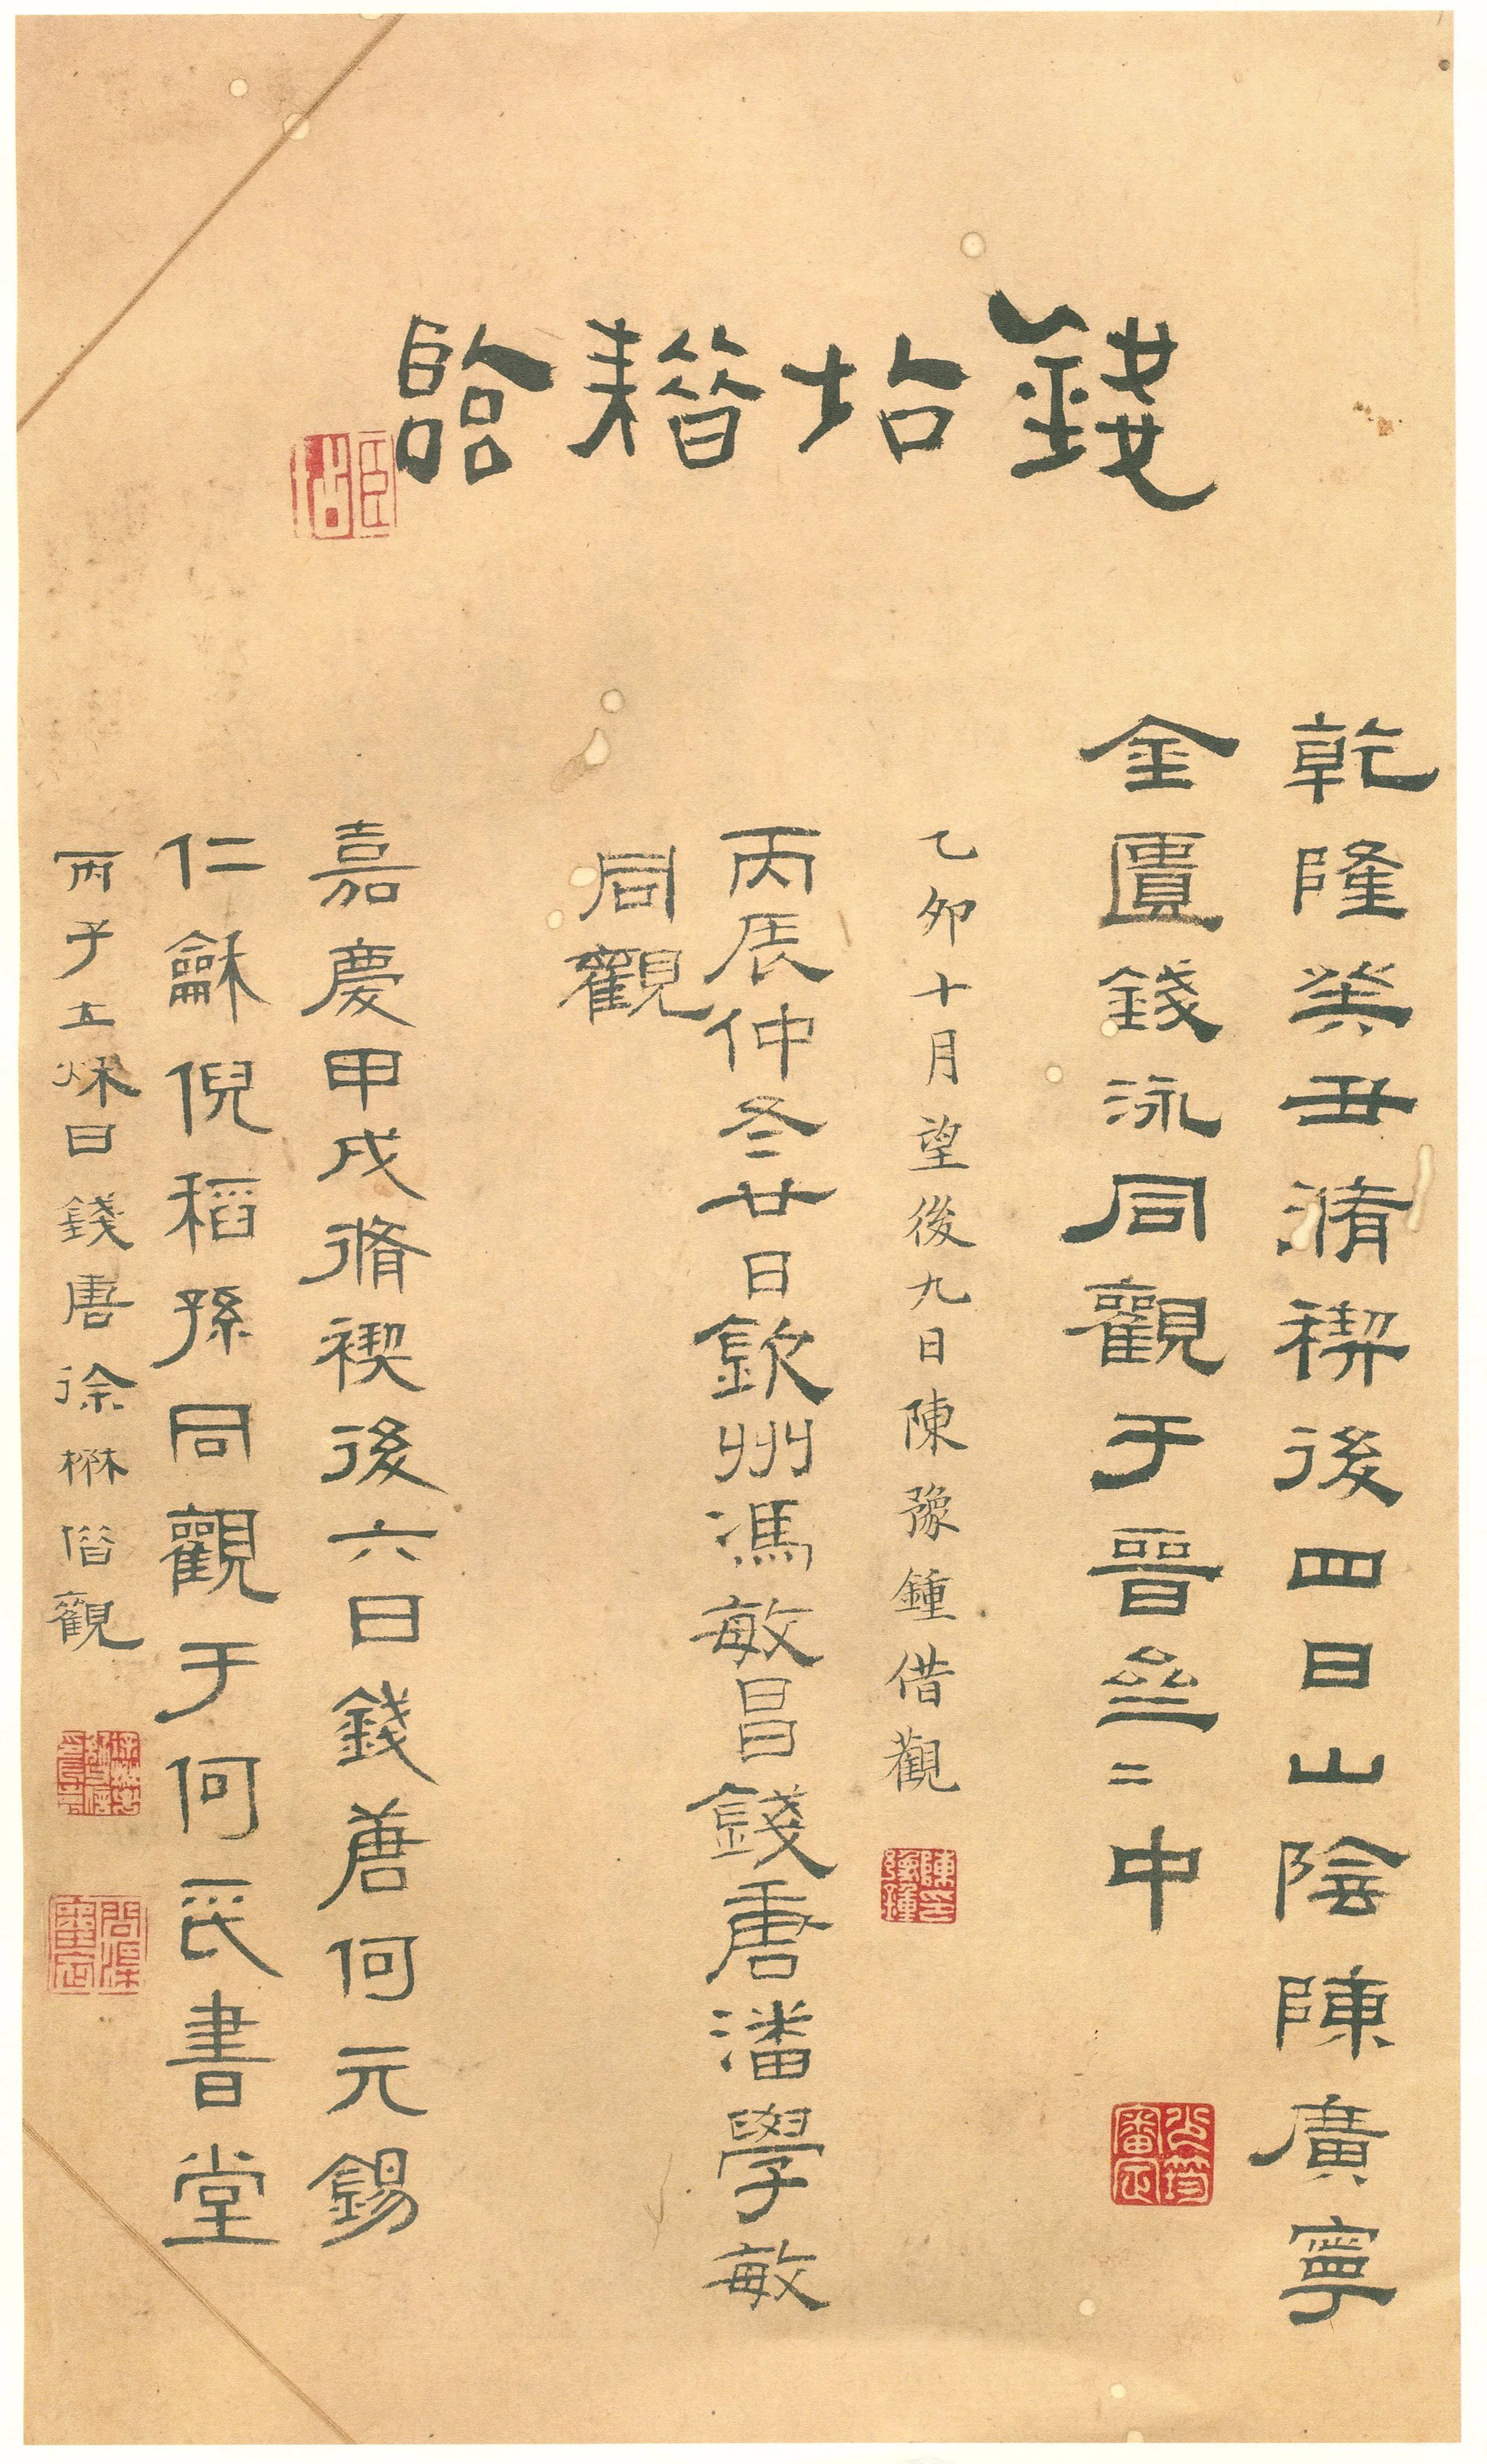 錢坫耤臨
臣坫
乾隆癸丑脩禊後四日山陰陳廣寧
金匱錢泳同觀于晉亝〻中
乙卯十月望後九日陳豫鍾借觀
丙辰仲冬廿日欽州馮敏昌錢唐潘學敏
同觀
嘉慶甲戌脩禊後六日錢唐何元錫
仁龢倪稻孫同觀于何氏書堂
丙子立秋日錢唐徐楙借觀
問渠審定